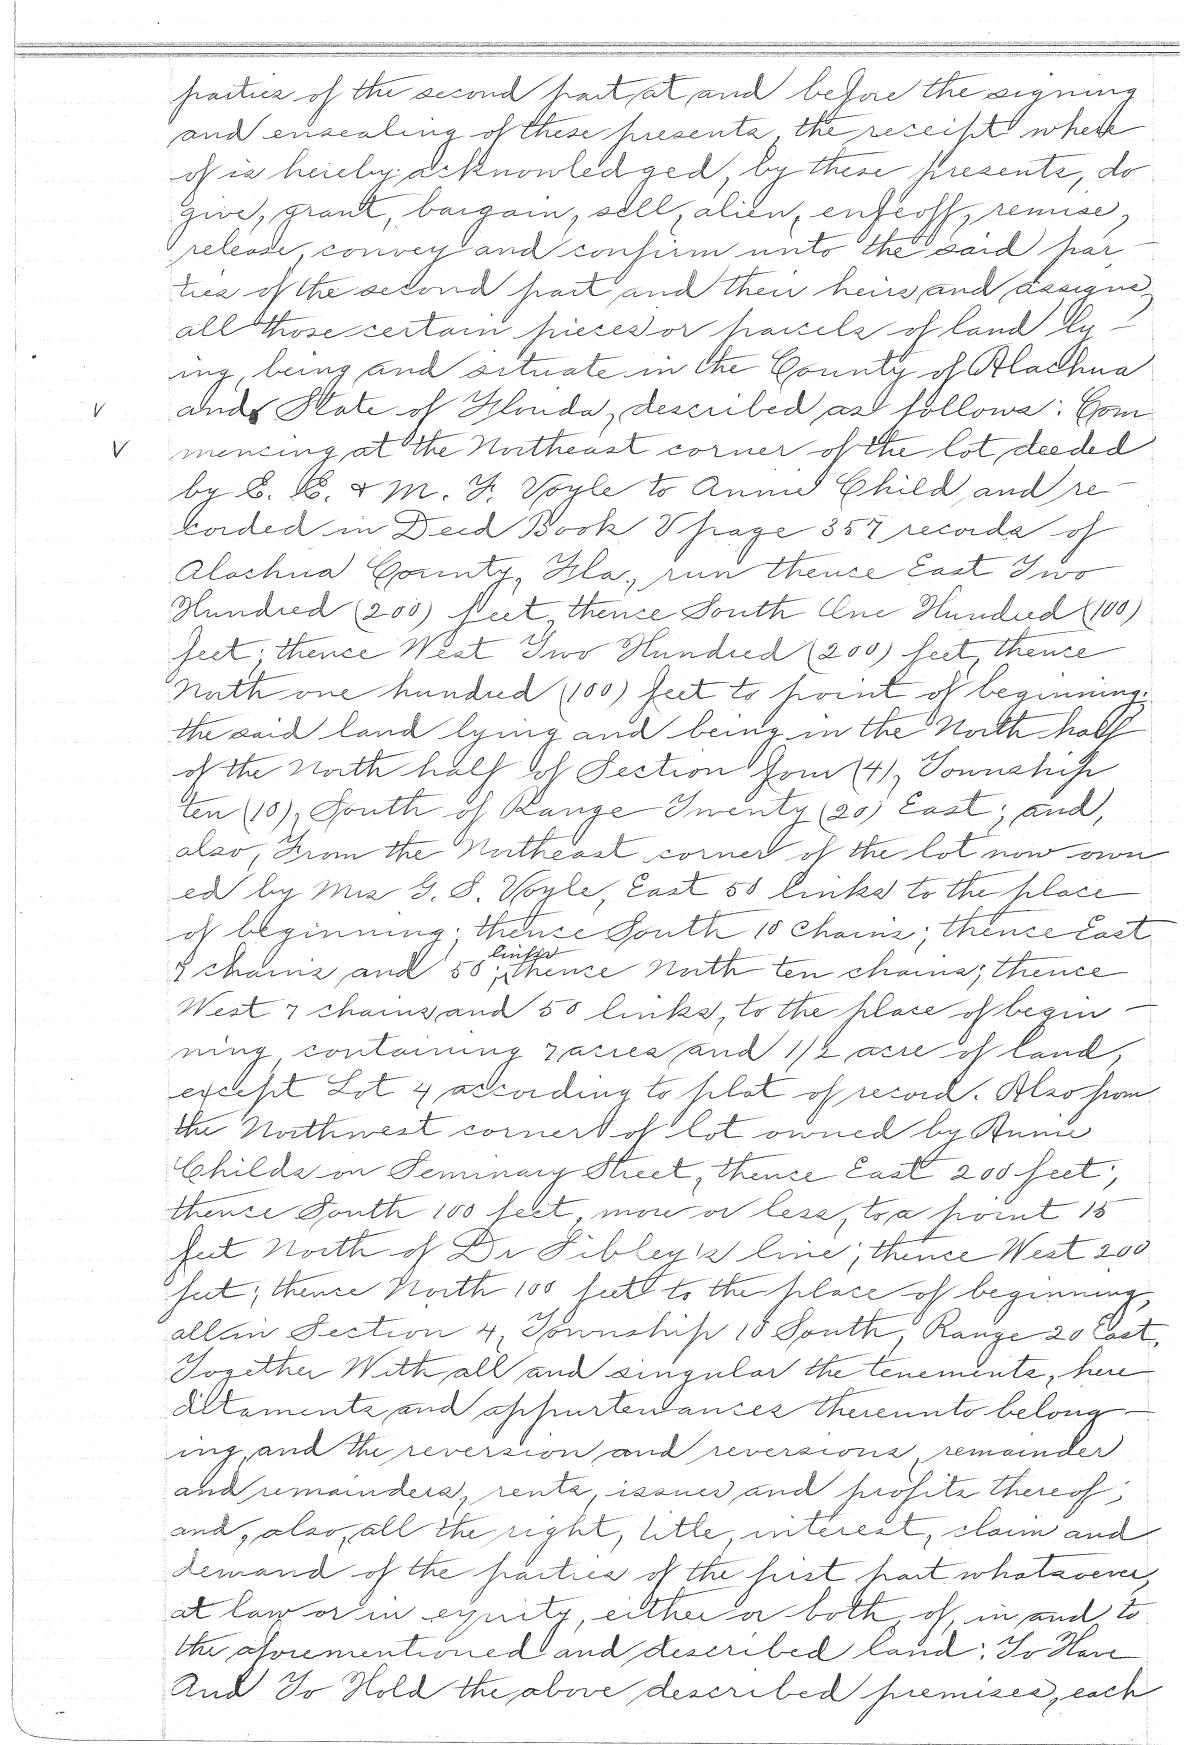 parties of the second part, at and before the signing
and ensealing of these presents, the receipt where
of is hereby acknowledged, by these presents, do
give, grant, bargain, sell, alien, enfeoff, remise,
release, convey and confirm unto the said par
ties of the second part and their heirs and assigns,
all those certain pieces or parcels of land ly-
ing, being and situate in the County of Alachua
v and State of Florida, described as follows: Com
v mencing at the Northeast corner of the lot deeded
by E. E. & M. F. Voyle to Annie Child and re-
corded in Deed Book V page 357 records of
Alachua County, Fla., run thence East Two
Hundred (200) feet, thence South One Hundred (100)
feet; thence West Two Hundred (200) feet, thence
North one hundred (100) feet to point of beginning.
the said land lying and being in the North half
of the North half of Section four (4), Township
ten (10), South of Range Twenty (20) East; and,
also, From the Northeast corner of the lot now own
ed by Mrs G. S. Voyle, East 50 links to the place
of beginning; thence South 10 chains; thence East
7 chains and 50 links; thence North ten chains; thence
West 7 chains and 50 links, to the place of begin-
ning, containing 7 acres and 1/2 acre of land,
except Lot 4 according to plat of record. Also from
the Northwest corner of lot owned by Annie
Childs on Seminary Street, thence East 200 feet;
thence South 100 feet, more or less, to a point 15
feet North of Dr Sibley's line; thence West 200
feet; thence North 100 feet to the place of beginning,
all in Section 4, Township 10 South, Range 20 East.
Together With all and singular the tenements, here
ditaments and appurtenances thereunto belong-
ing, and the reversion and reversions, remainder
and remainders, rents, issues and profits thereof;
and, also, all the right, title, interest, claim and
demand of the parties of the first part whatsoever,
at law or in equity, either or both, of, in and to
the aforementioned and described land: To Have
And To Hold the above described premises, each